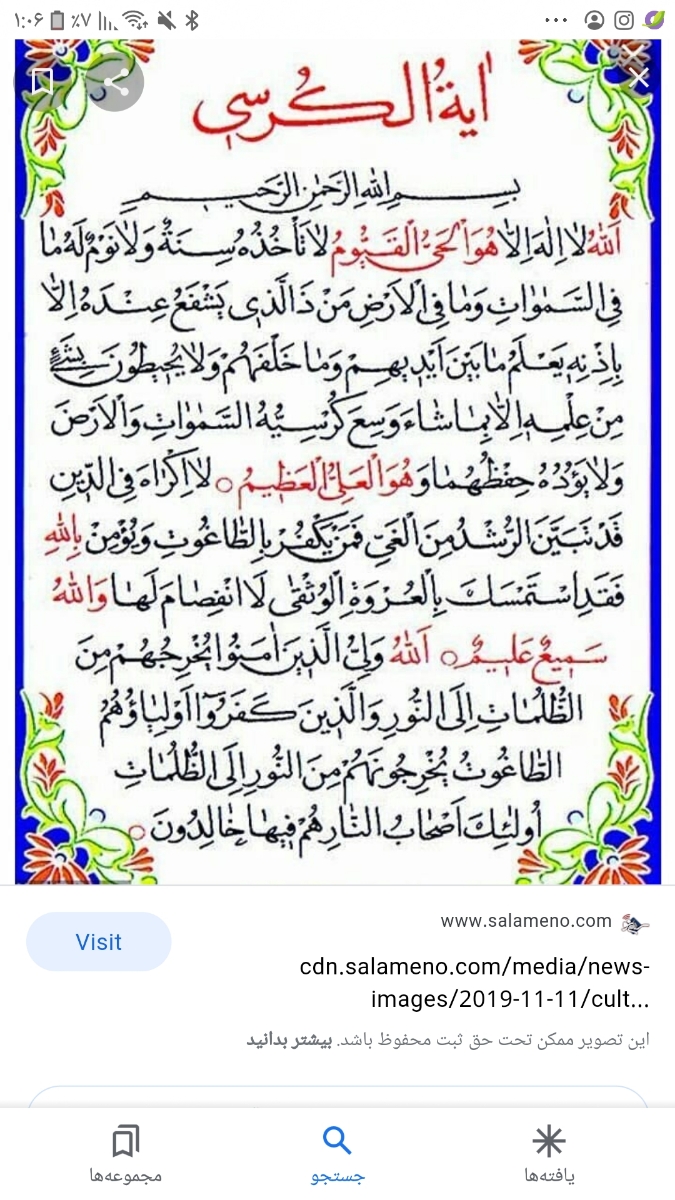 ۱:۰۶ ٪۷
اٰیةُ الکُرسی
بسم اللهِ الرَّحمٰنِ الرَّحیم
اَللهُ لا اِلٰهَ اِلاّٰ هُوَ الْحَیُّ الْقَیُّومُ لا تَأخُذُهُ سِنَةٌ وَ لا نَوْمٌ لَهُ مٰا
فِی السَّمٰوٰاتِ وَ مٰا فِی الْاَرْضِ مَنْ ذَا الَّذی یَشْفَعُ عِنْدَهُ اِلاّٰ
بِاِذْنِهِ یَعْلَمُ مٰا بَیْنَ اَیْدیهِمْ وَ مٰا خَلْفَهُمْ وَ لا یُحیطُونَ بِشَیْءٍ
مِنْ عِلْمِهِ اِلاّٰ بِمٰا شٰاءَ وَسِعَ کُرْسِیُّهُ السَّمٰوٰاتِ وَ الْاَرْضَ
وَ لا یَؤُدُهُ حِفْظُهُمٰا وَ هُوَ الْعَلِیُّ الْعَظیمُ ○ لا اِکْرٰاهَ فِی الدّینِ
قَدْ تَبَیَّنَ الرُّشْدُ مِنَ الْغَیِّ فَمَنْ یَکْفُرْ بِالطّٰاغُوتِ وَ یُؤْمِنْ بِاللهِ
فَقَدِ اسْتَمْسَکَ بِالْعُرْوَةِ الْوُثْقیٰ لَا انْفِصٰامَ لَهٰا وَ اللهُ
سَمیعٌ عَلیمٌ ○ اَللهُ وَلِیُّ الَّذینَ اٰمَنُوا یُخْرِجُهُمْ مِنَ
الظُّلُمٰاتِ اِلَی النُّورِ وَ الَّذینَ کَفَرُوٓا اَوْلِیٰاؤُهُمُ
الطّٰاغُوتُ یُخْرِجُونَهُمْ مِنَ النُّورِ اِلَی الظُّلُمٰاتِ
اُولٰئِکَ اَصْحٰابُ النّٰارِ هُمْ فیهٰا خٰالِدُونَ ○
www.salameno.com
Visit
cdn.salameno.com/media/news-
images/2019-11-11/cult...
این تصویر ممکن تحت حق ثبت محفوظ باشد. بیشتر بدانید
یافته‌ها
جستجو
مجموعه‌ها